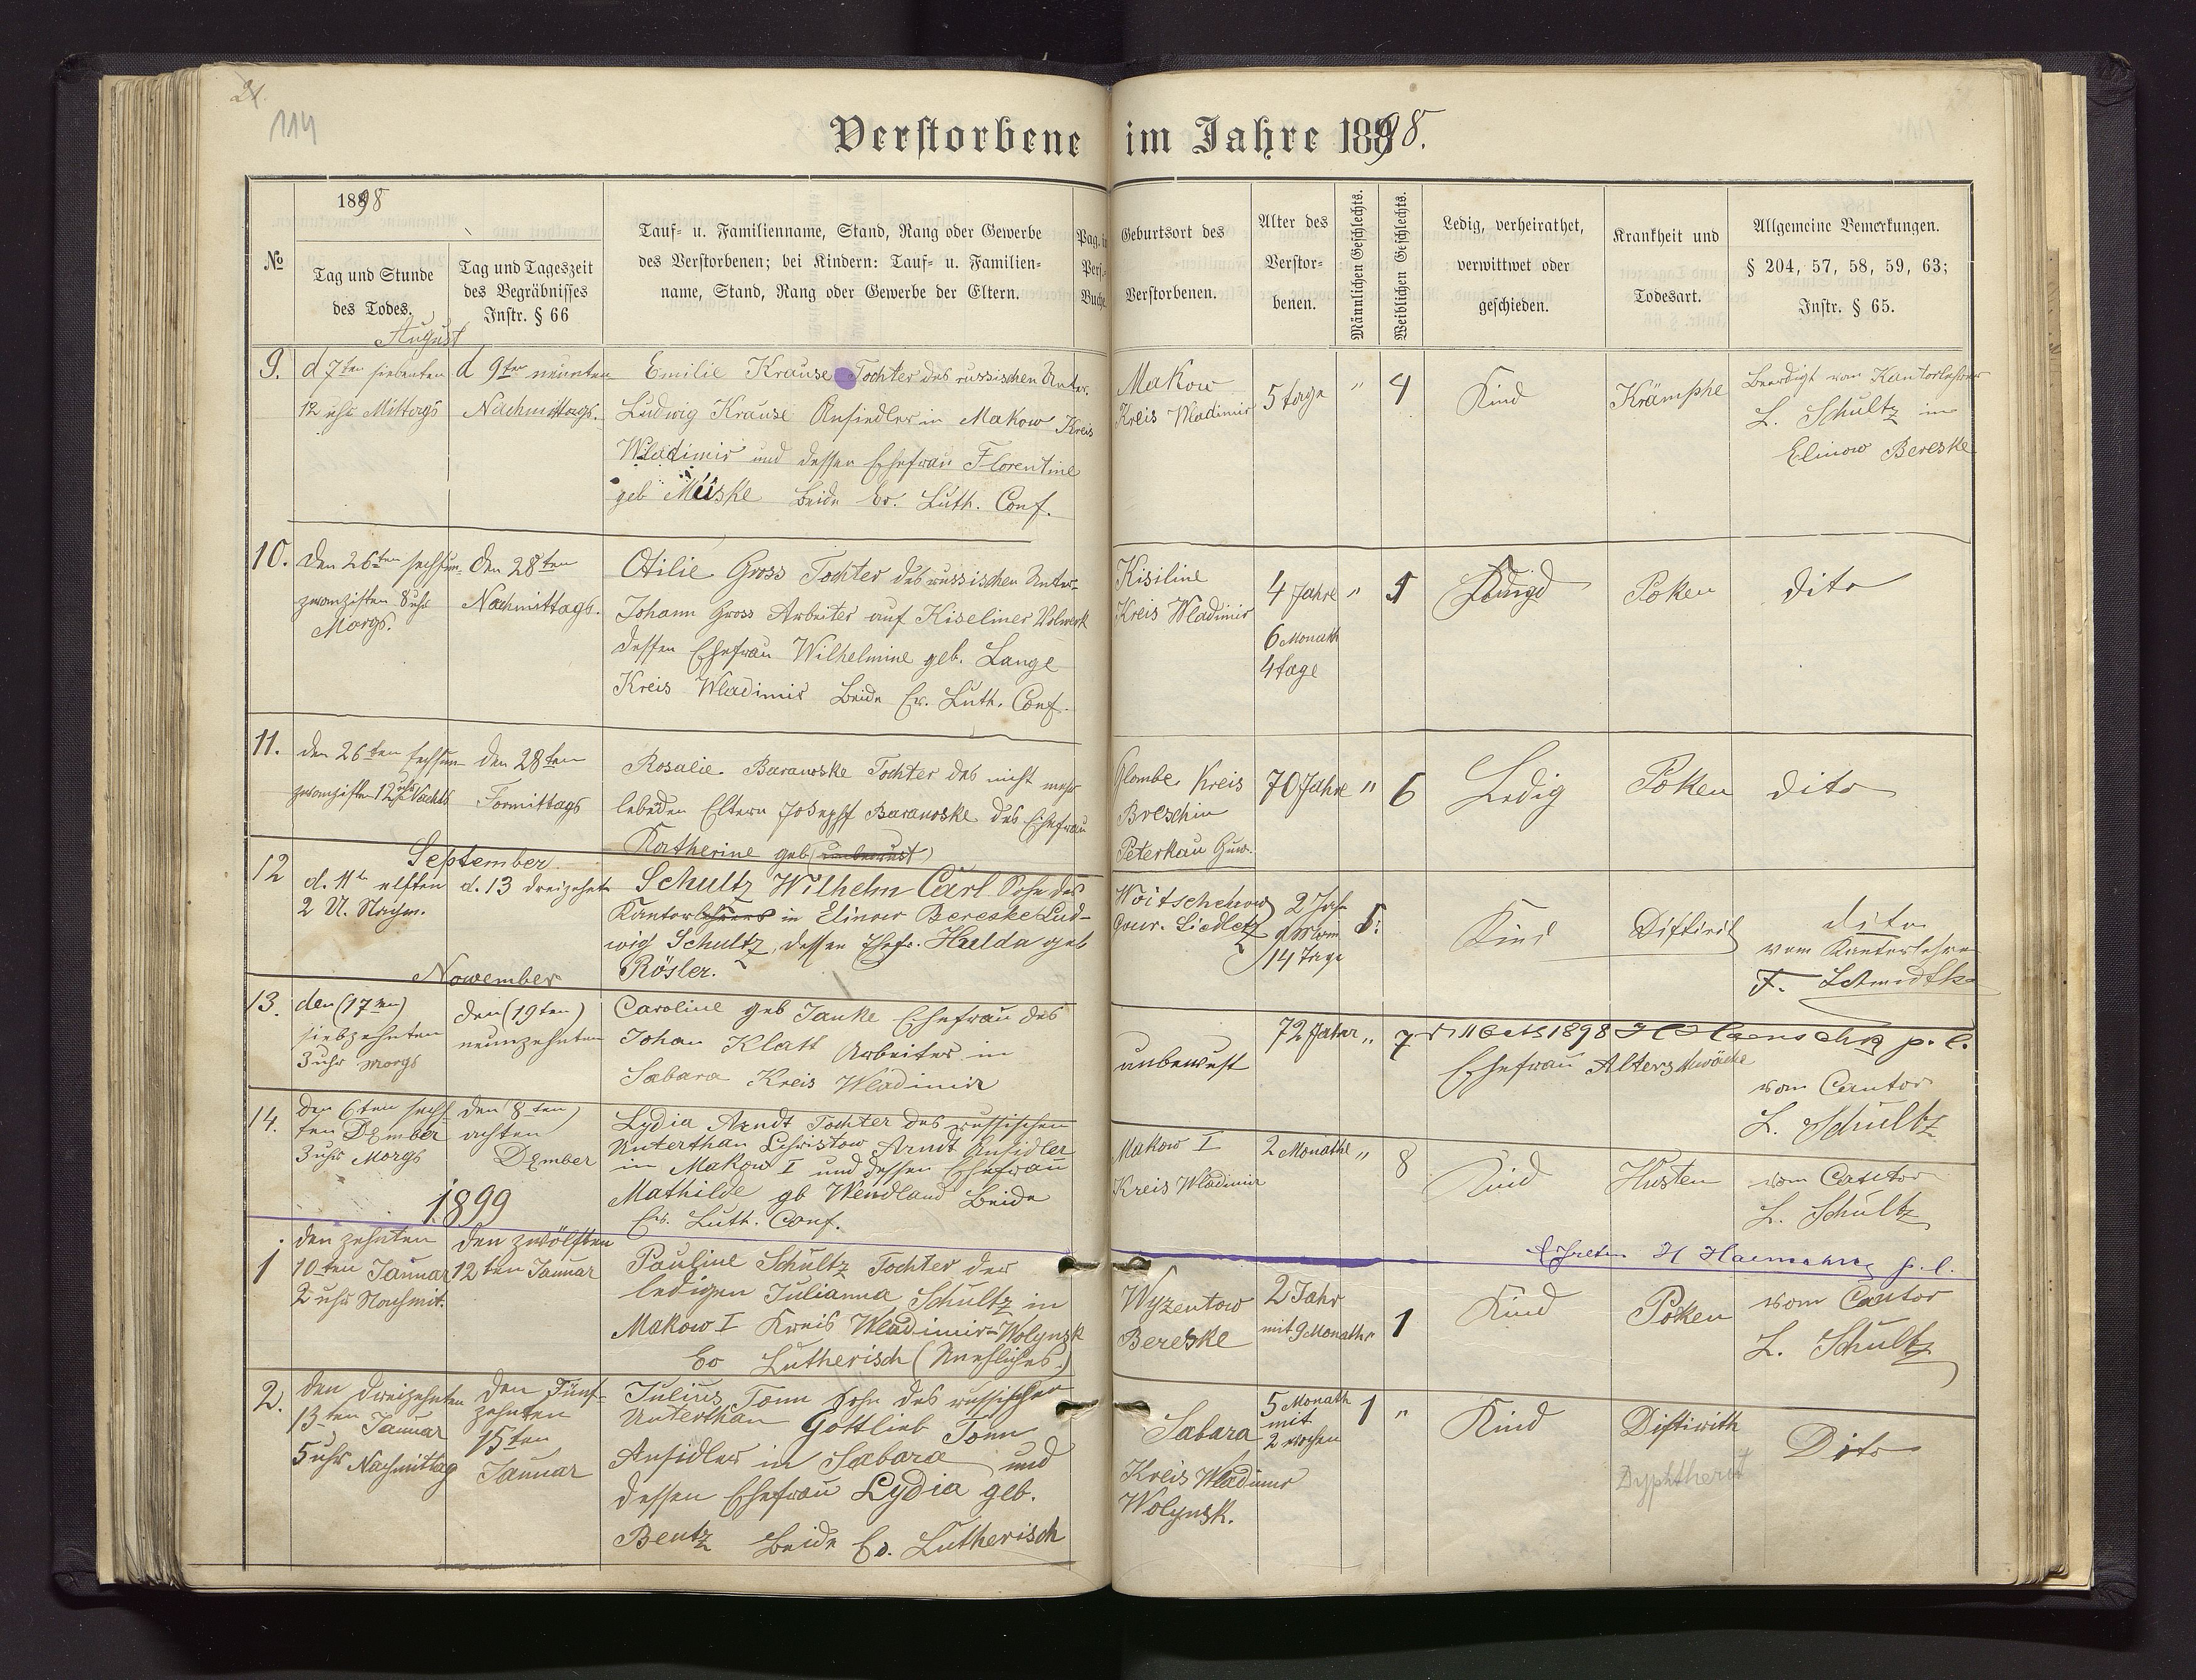 21.
114
Verstorbene im Jahre 1898.
1898
№
Tag und Stunde
des Todes.
Tag und Tageszeit
des Begräbnisses
Instr. § 66
Tauf- u. Familienname, Stand, Rang oder Gewerbe
des Verstorbenen; bei Kindern: Tauf- u. Familien-
name, Stand, Rang oder Gewerbe der Eltern.
Pag. i
Pers.
Buche
Geburtsort des
Verstorbenen.
Alter des
Verstor-
benen.
Männlichen Geschlechts.
Weiblichen Geschlechts.
Ledig, verheirathet,
verwittwet oder
geschieden.
Krankheit und
Todesart.
Allgemeine Bemerkungen.
§ 204, 57, 58, 59, 63;
Instr. § 65.
August
9.
d 7ten siebenten
12 uhr Mittags
d 9ten neunten
Nachmittags.
Emilie Krause Tochter des russischen Unter.
Ludwig Krause Ansiedler in Makow Kreis
Wladimir und dessen Ehefrau Florentine
geb Meiske beide Ev. Luth. Conf.
Makow
Kreis Wladimir
5 tage
"
4
Kind
Krämphe
Beerdigt vom Kantorlehrer
L. Schultz in
Elinow Bereske
10.
den 26ten sechsun-
zwanzisten 8 uhr
Morgs.
den 28ten
Nachmittags.
Otilie Gross Tochter des russischen Unter-
Johann Gross Arbeiter auf Kiseliner Volwerk
dessen Ehefrau Wilhelmine geb. Lange
Kreis Wladimir Beide Ev. Luth. Conf.
Kisiline
Kreis Wladimir
4 Jahre
6 Monath
4 tage
"
5
Poken
dito
11.
den 26ten sechsun-
zwanzisten 12 uhr Nachts
den 28ten
Formittags
Rosalie Baranoske Tochter des nicht mehr
lebeden Eltern Josepf Baranoske des Ehefrau
Katherine geb (unbewust)
Glombe Kreis
Breschin
Peterkau Guw.
70 Jahre
"
6
Ledig
Poken
dito
September
12
d. 11t elften
2 U. Nachm.
d. 13 dreizehnt
Schultz Wilhelm Carl Sohn des
Kantorlehrers in Elinow Bereske Lud-
wig Schultz, dessen Ehefr. Hulda geb
Rösler.
Woitschehow
Gouv. Siedletz
2 Jah
9 Mon
14 Tage
5:
Kind
Diftirit
dito
vom Kantorlehrer
F. Schmidtke
Nowember
13.
den (17ten)
siebzehnten
3 uhr Morgs
den (19ten)
neunzehnten
Caroline geb Janke Ehefrau des
Johan Klatt Arbeiter in
Sabara Kreis Wladimir
unbewust
72 Jahr
"
7
d 11 Oct 1898 p. l.
Ehefrau
Altersschwäche
vom Cantor
L. Schultz
14.
den 6ten sechs-
ten Dzember
3 uhr Morgs
den 8ten)
achten
Dzember
Lydia Arndt Tochter des russischen
Unterthan Christow Arndt Ansidler
in Makow I und dessen Ehefrau
Mathilde gb Wendland beide
Ev. Luth. Conf.
Makow I
Kreis Wladimir
2 Monathe
"
8
Kind
Husten
vom Cantor
L. Schultz
1899
p. l.
1
den zehnten
10ten Januar
2 uhr Nachmit.
den zwölften
12ten Januar
Pauline Schultz Tochter der
ledigen Julianna Schultz in
Makow I Kreis Wladimir-Wolynsk
Ev Lutherisch (Unehliches.)
Wyzentow
Bereske
2 Jahr
mit 9 Monathe
"
1
Kind
Poken
vom Cantor
L. Schultz
2.
den dreizehnten
13ten Januar
5 uhr Nachmittag
den Fünf-
zehnten
15ten
Januar
Julius Tonn Sohn des russischen
Unterthan Gottlieb Tonn
Ansidler in Sabara und
dessen Ehefrau Lydia geb.
Bentz beide Ev. Lutherisch
Sabara
Kreis Wladimir
Wolynsk.
5 Monath
mit
2 wochen
1
"
Kind
Diftirith
Dyphtherit
Dito